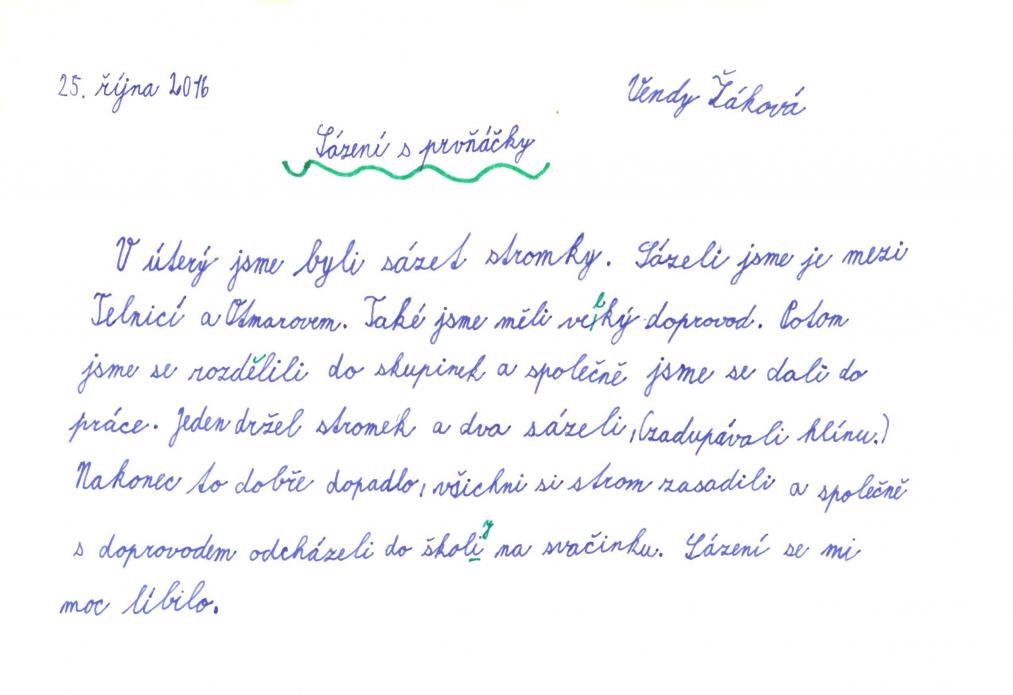 25. října 2016
Vendy Žáková
Sázení s prvňáčky
V úterý jsme byli sázet stromky. Sázeli jsme je mezi
Telnicí a Otmarovem. Také jsme měli velký doprovod. Potom
jsme se rozdělili do skupinek a společně jsme se dali do
práce. Jeden držel stromek a dva sázeli, (zadupávali hlínu.)
Nakonec to dobře dopadlo, všichni si strom zasadili a společně
s doprovodem odcházeli do školi y na svačinku. Sázení se mi
moc líbilo.